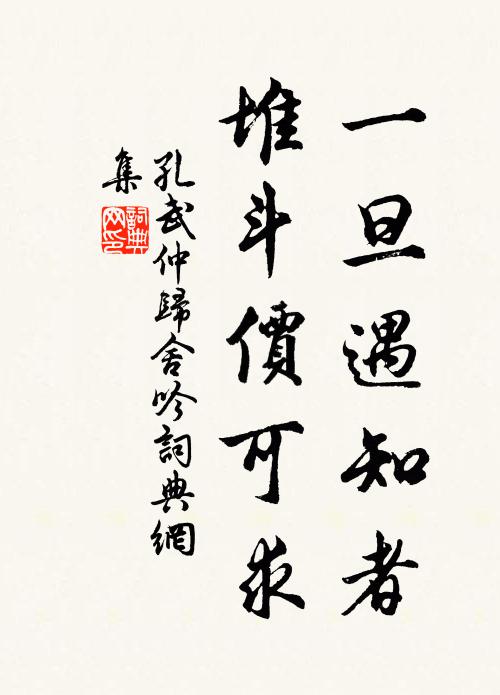 一旦遇知者
堆斗價可求
孔武仲歸舍吟詞典網
集
詞典
网印